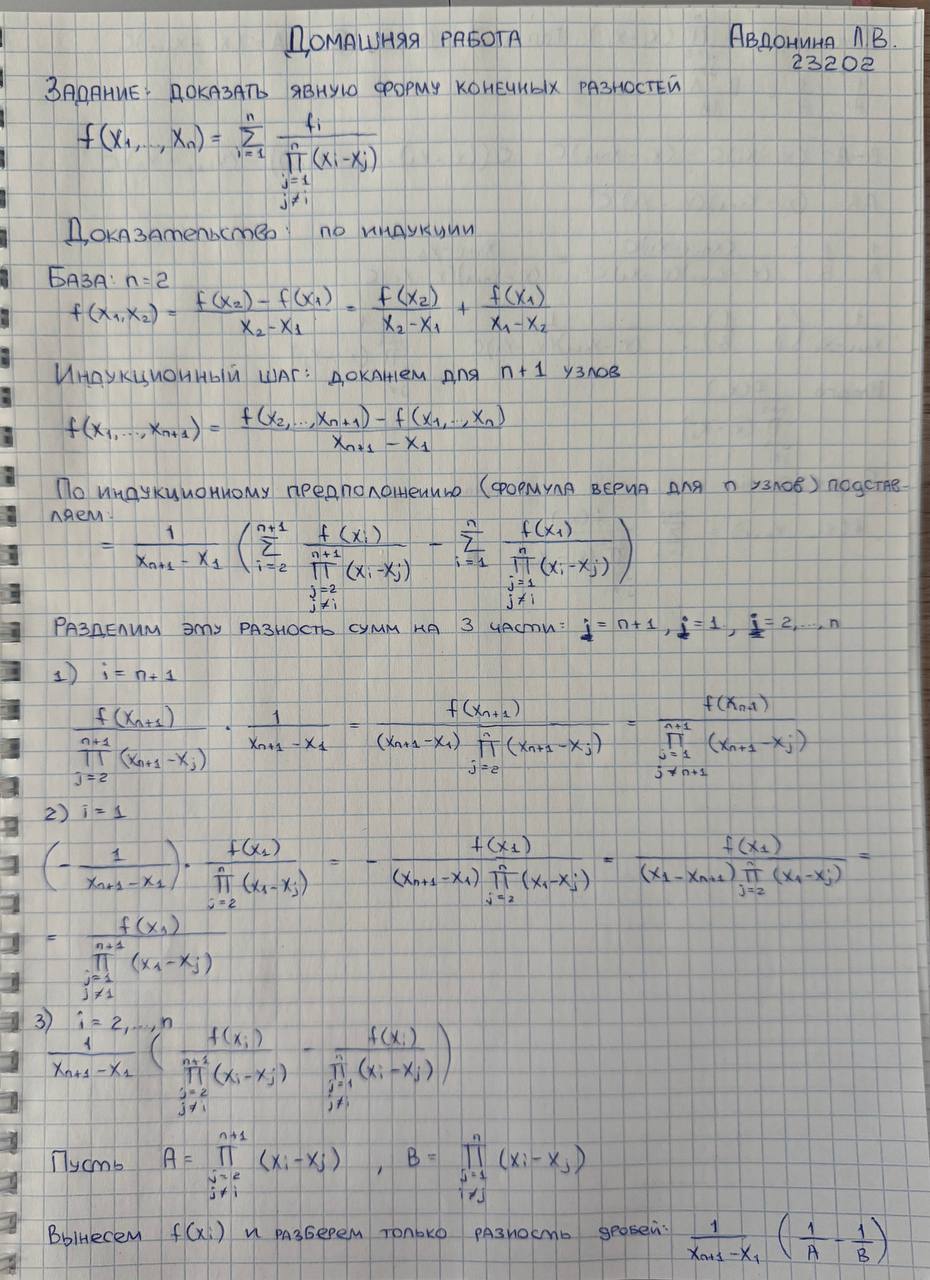 Домашняя работа
Авдонина Л.В.
23202
Задание: доказать явную форму конечных разностей
f(x₁,...,xₙ) = ∑_{i=1}^{n} fᵢ / ∏_{j=1, j≠i}^{n} (xᵢ-xⱼ)
Доказательство: по индукции
База: n=2
f(x₁,x₂) = (f(x₂) - f(x₁)) / (x₂-x₁) = f(x₂) / (x₂-x₁) + f(x₁) / (x₁-x₂)
Индукционный шаг: докажем для n+1 узлов
f(x₁,...,xₙ₊₁) = (f(x₂,...,xₙ₊₁) - f(x₁,...,xₙ)) / (xₙ₊₁ - x₁)
По индукционному предположению (формула верна для n узлов) подстав-
ляем:
= 1 / (xₙ₊₁ - x₁) ( ∑_{i=2}^{n+1} f(xᵢ) / ∏_{j=2, j≠i}^{n+1} (xᵢ-xⱼ) - ∑_{i=1}^{n} f(x₁) / ∏_{j=1, j≠i}^{n} (xᵢ-xⱼ) )
Разделим эту разность сумм на 3 части: j=n+1, j=1, j=2,...,n
1) i=n+1
f(xₙ₊₁) / ∏_{j=2}^{n+1} (xₙ₊₁-xⱼ) · 1 / (xₙ₊₁-x₁) = f(xₙ₊₁) / ((xₙ₊₁-x₁) ∏_{j=2}^{n} (xₙ₊₁-xⱼ)) = f(xₙ₊₁) / ∏_{j=1, j≠n+1}^{n+1} (xₙ₊₁-xⱼ)
2) i=1
( - 1 / (xₙ₊₁-x₁) ) · f(x₁) / ∏_{j=2}^{n} (x₁-xⱼ) = - f(x₁) / ((xₙ₊₁-x₁) ∏_{j=2}^{n} (x₁-xⱼ)) = f(x₁) / ((x₁-xₙ₊₁) ∏_{j=2}^{n} (x₁-xⱼ)) =
= f(x₁) / ∏_{j=1, j≠1}^{n+1} (x₁-xⱼ)
3) i=2,...,n
1 / (xₙ₊₁-x₁) ( f(xᵢ) / ∏_{j=2, j≠i}^{n+1} (xᵢ-xⱼ) - f(xᵢ) / ∏_{j=1, j≠i}^{n} (xᵢ-xⱼ) )
Пусть A = ∏_{j=2, j≠i}^{n+1} (xᵢ-xⱼ) , B = ∏_{j=1, i≠j}^{n} (xᵢ-xⱼ)
Вынесем f(xᵢ) и разберем только разность дробей: 1 / (xₙ₊₁-x₁) ( 1/A - 1/B )